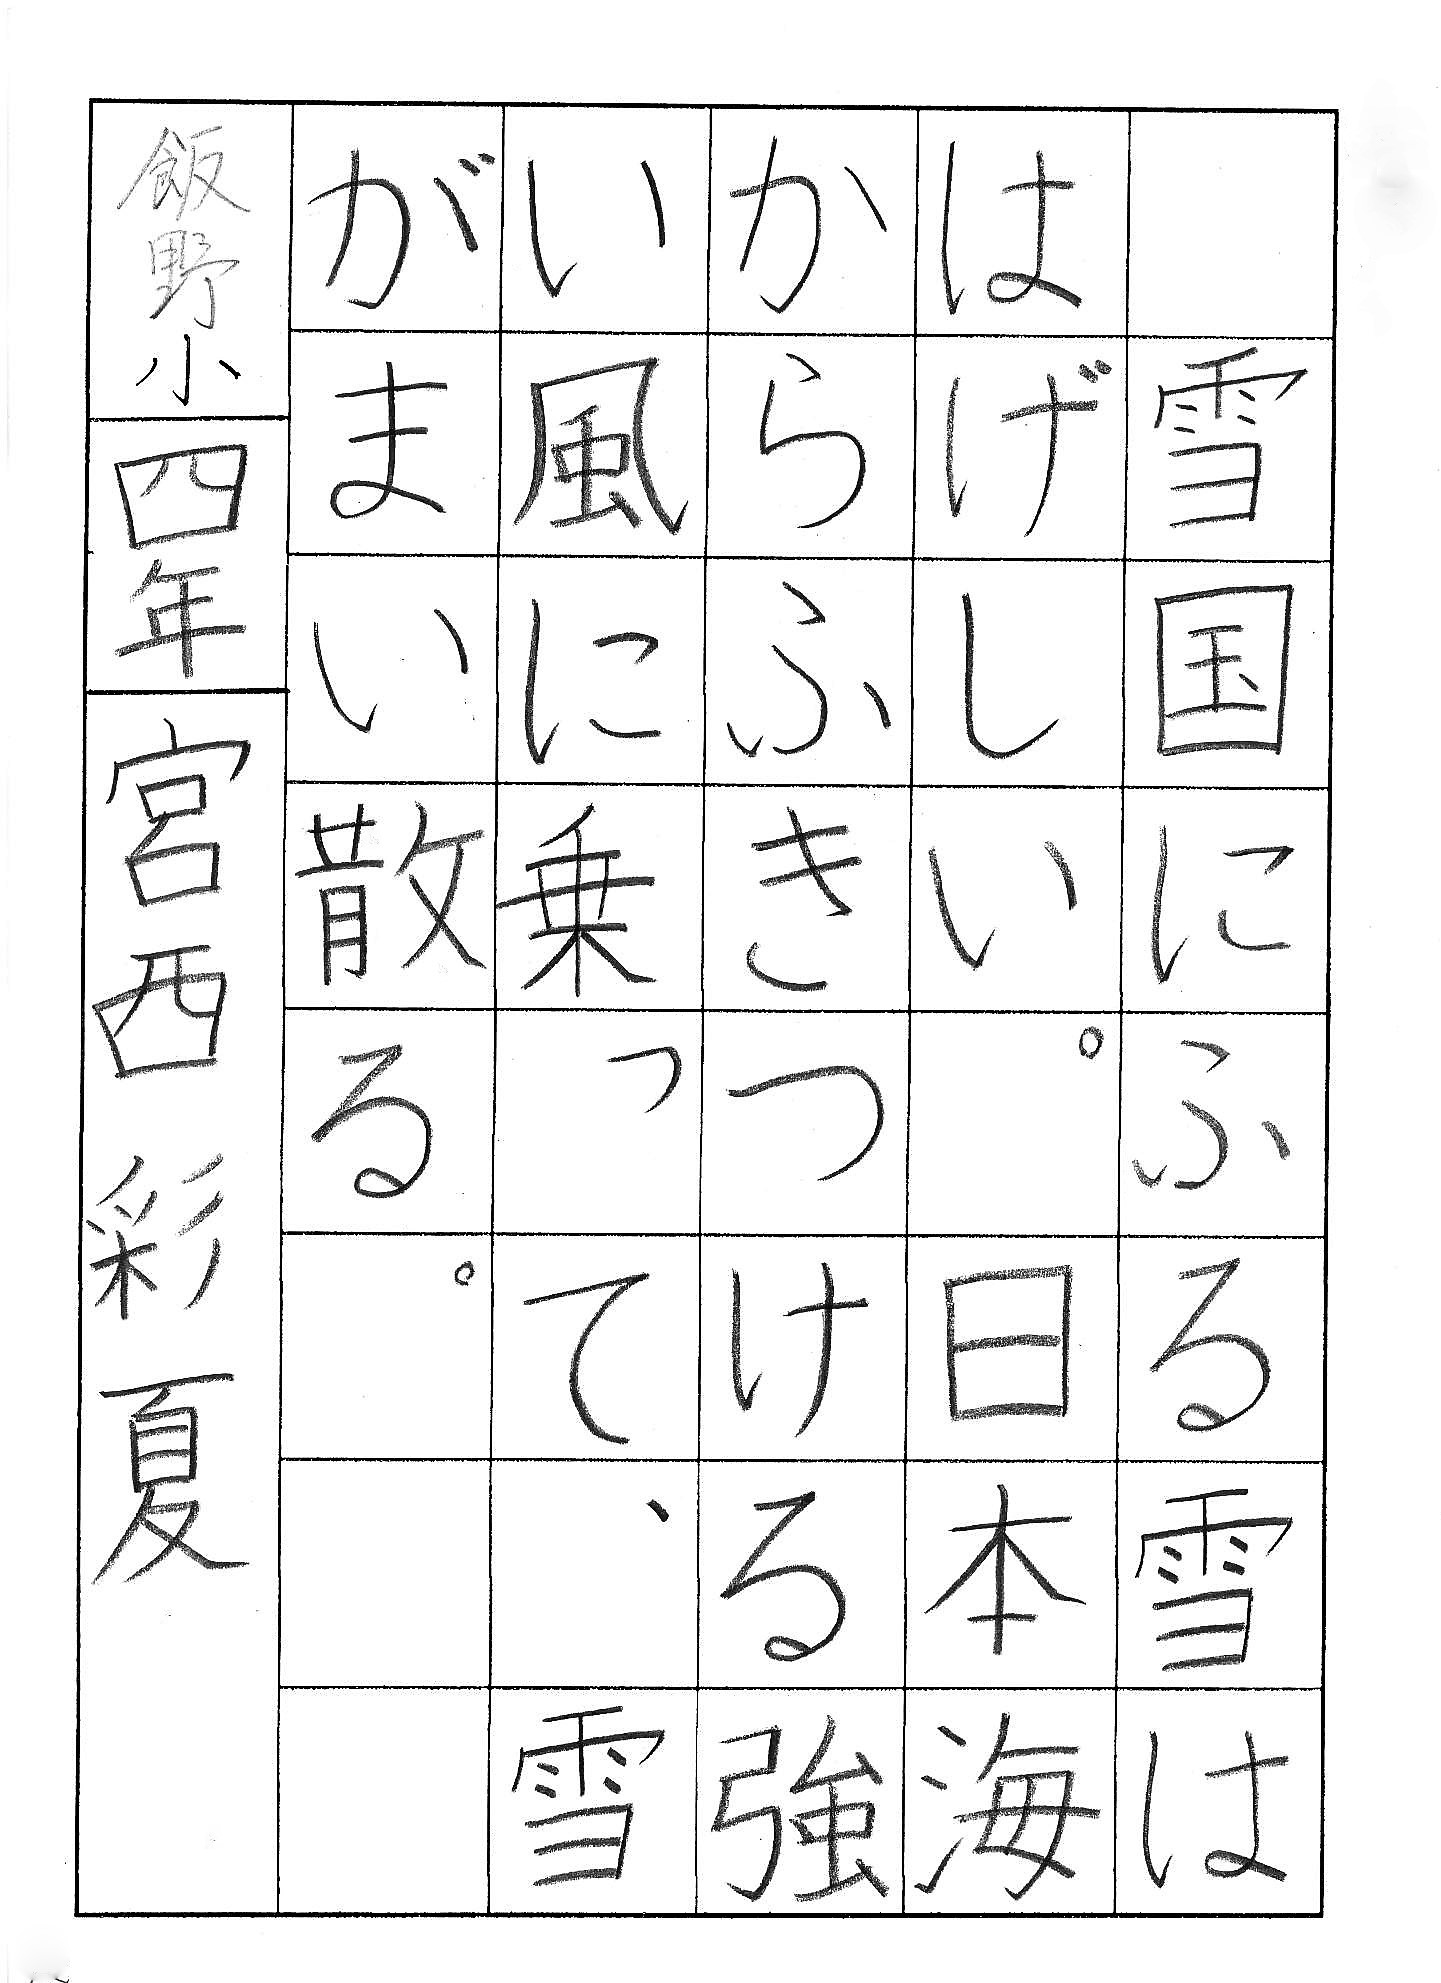 雪国にふる雪は
はげしい。日本海
からふきつける強
い風に乗って、雪
がまい散る。
飯野小 四年 宮西彩夏